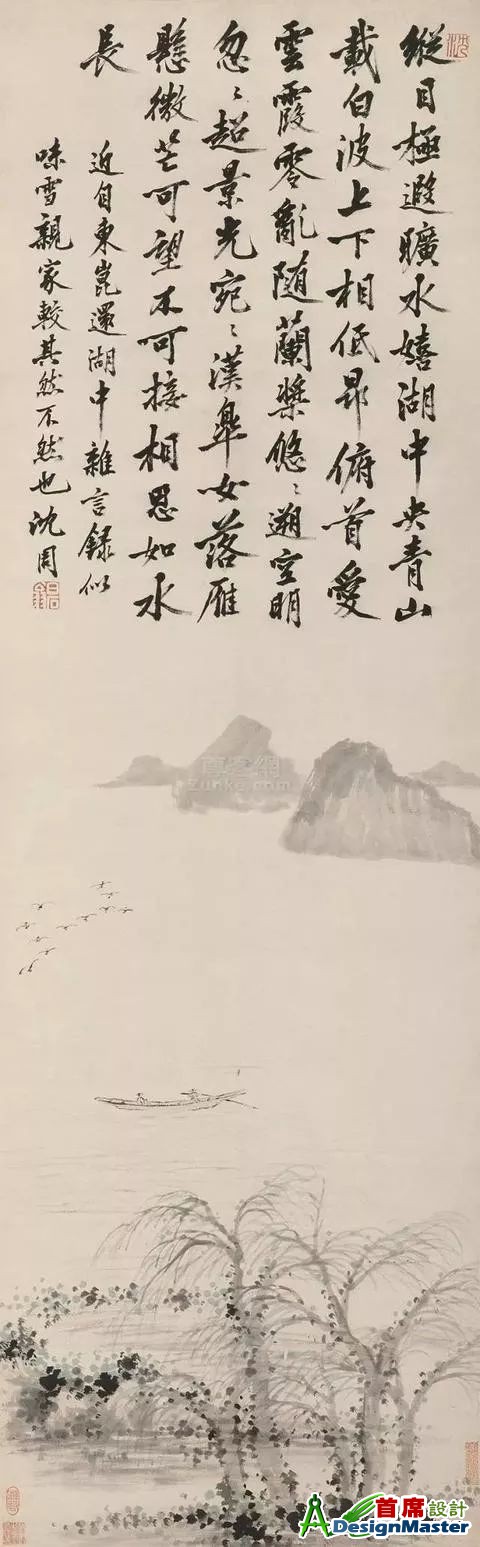 縱目極遐曠水嬉湖中央青山
載白波上下相低昂俯首愛
雲霞零亂隨蘭槳悠〻遡空明
忽〻超景光宛〻漢皋女落雁
懸微茫可望不可接相思如水
長
近自東崑還湖中雜言錄似
味雪親家較其然不然也沈周
尊客網
zunke.com
首席設計
ADesignMaster